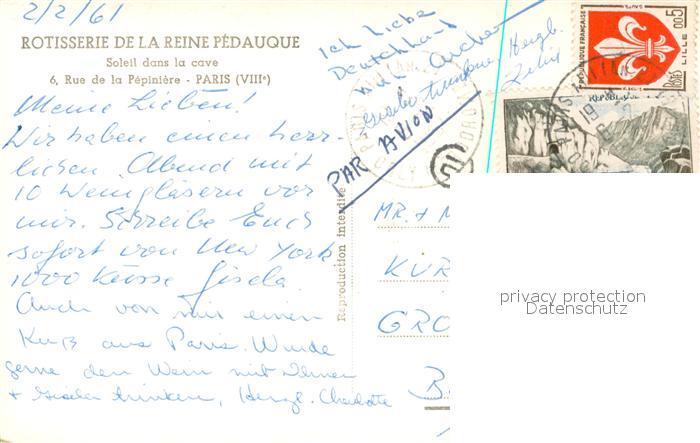 2/2/61
ROTISSERIE DE LA REINE PÉDAUQUE
Soleil dans la cave
6, Rue de la Pépinière - PARIS (VIIIe)
Meine Lieben!
Wir haben einen herr-
lichen Abend mit
10 Weingläsern vor
mir. Schreibe Euch
sofort von New York
1000 Küsse Gisela.
Auch von mir einen
Kuß aus Paris. Würde
gerne den Wein mit Ihnen
+ Gisela trinken, Herzl. Charlotte
Ich liebe
Deutschland
Herzl.
PAR AVION
Reproduction interdite
RÉPUBLIQUE FRANÇAISE
0,05
POSTES
LILLE
MR. + M
KUR
GRO
B
privacy protection
Datenschutz